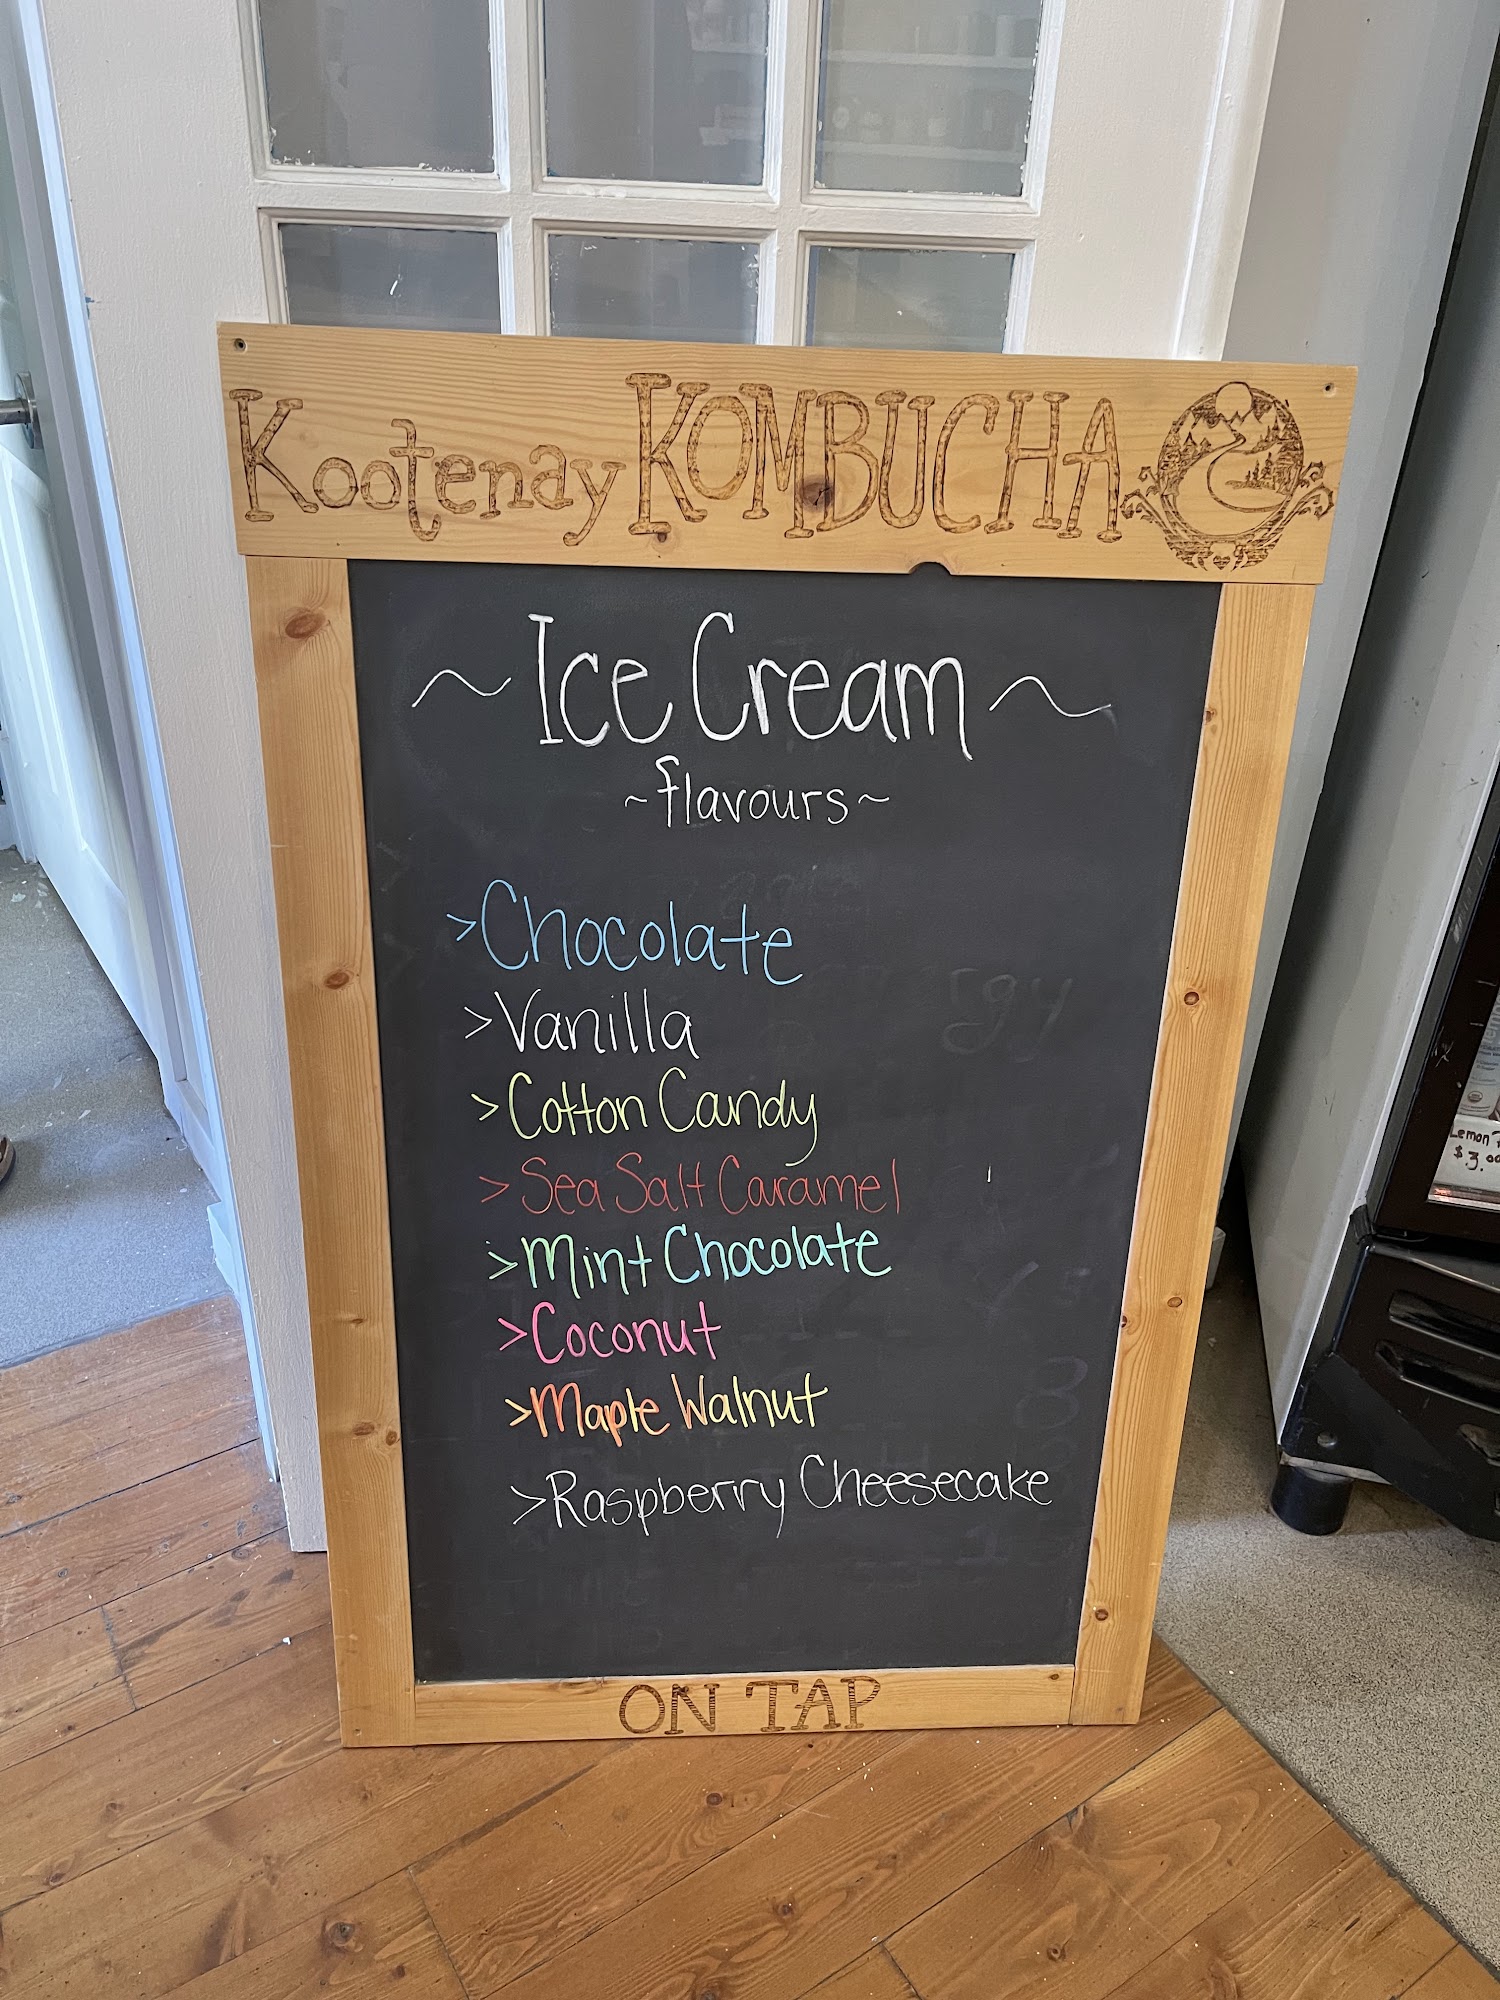 Kootenay KOMBUCHA
~ Ice Cream ~
~flavours~
>Chocolate
>Vanilla
>Cotton Candy
>Sea Salt Caramel
>Mint Chocolate
>Coconut
>Maple Walnut
>Raspberry Cheesecake
ON TAP
Lemon
$3.00